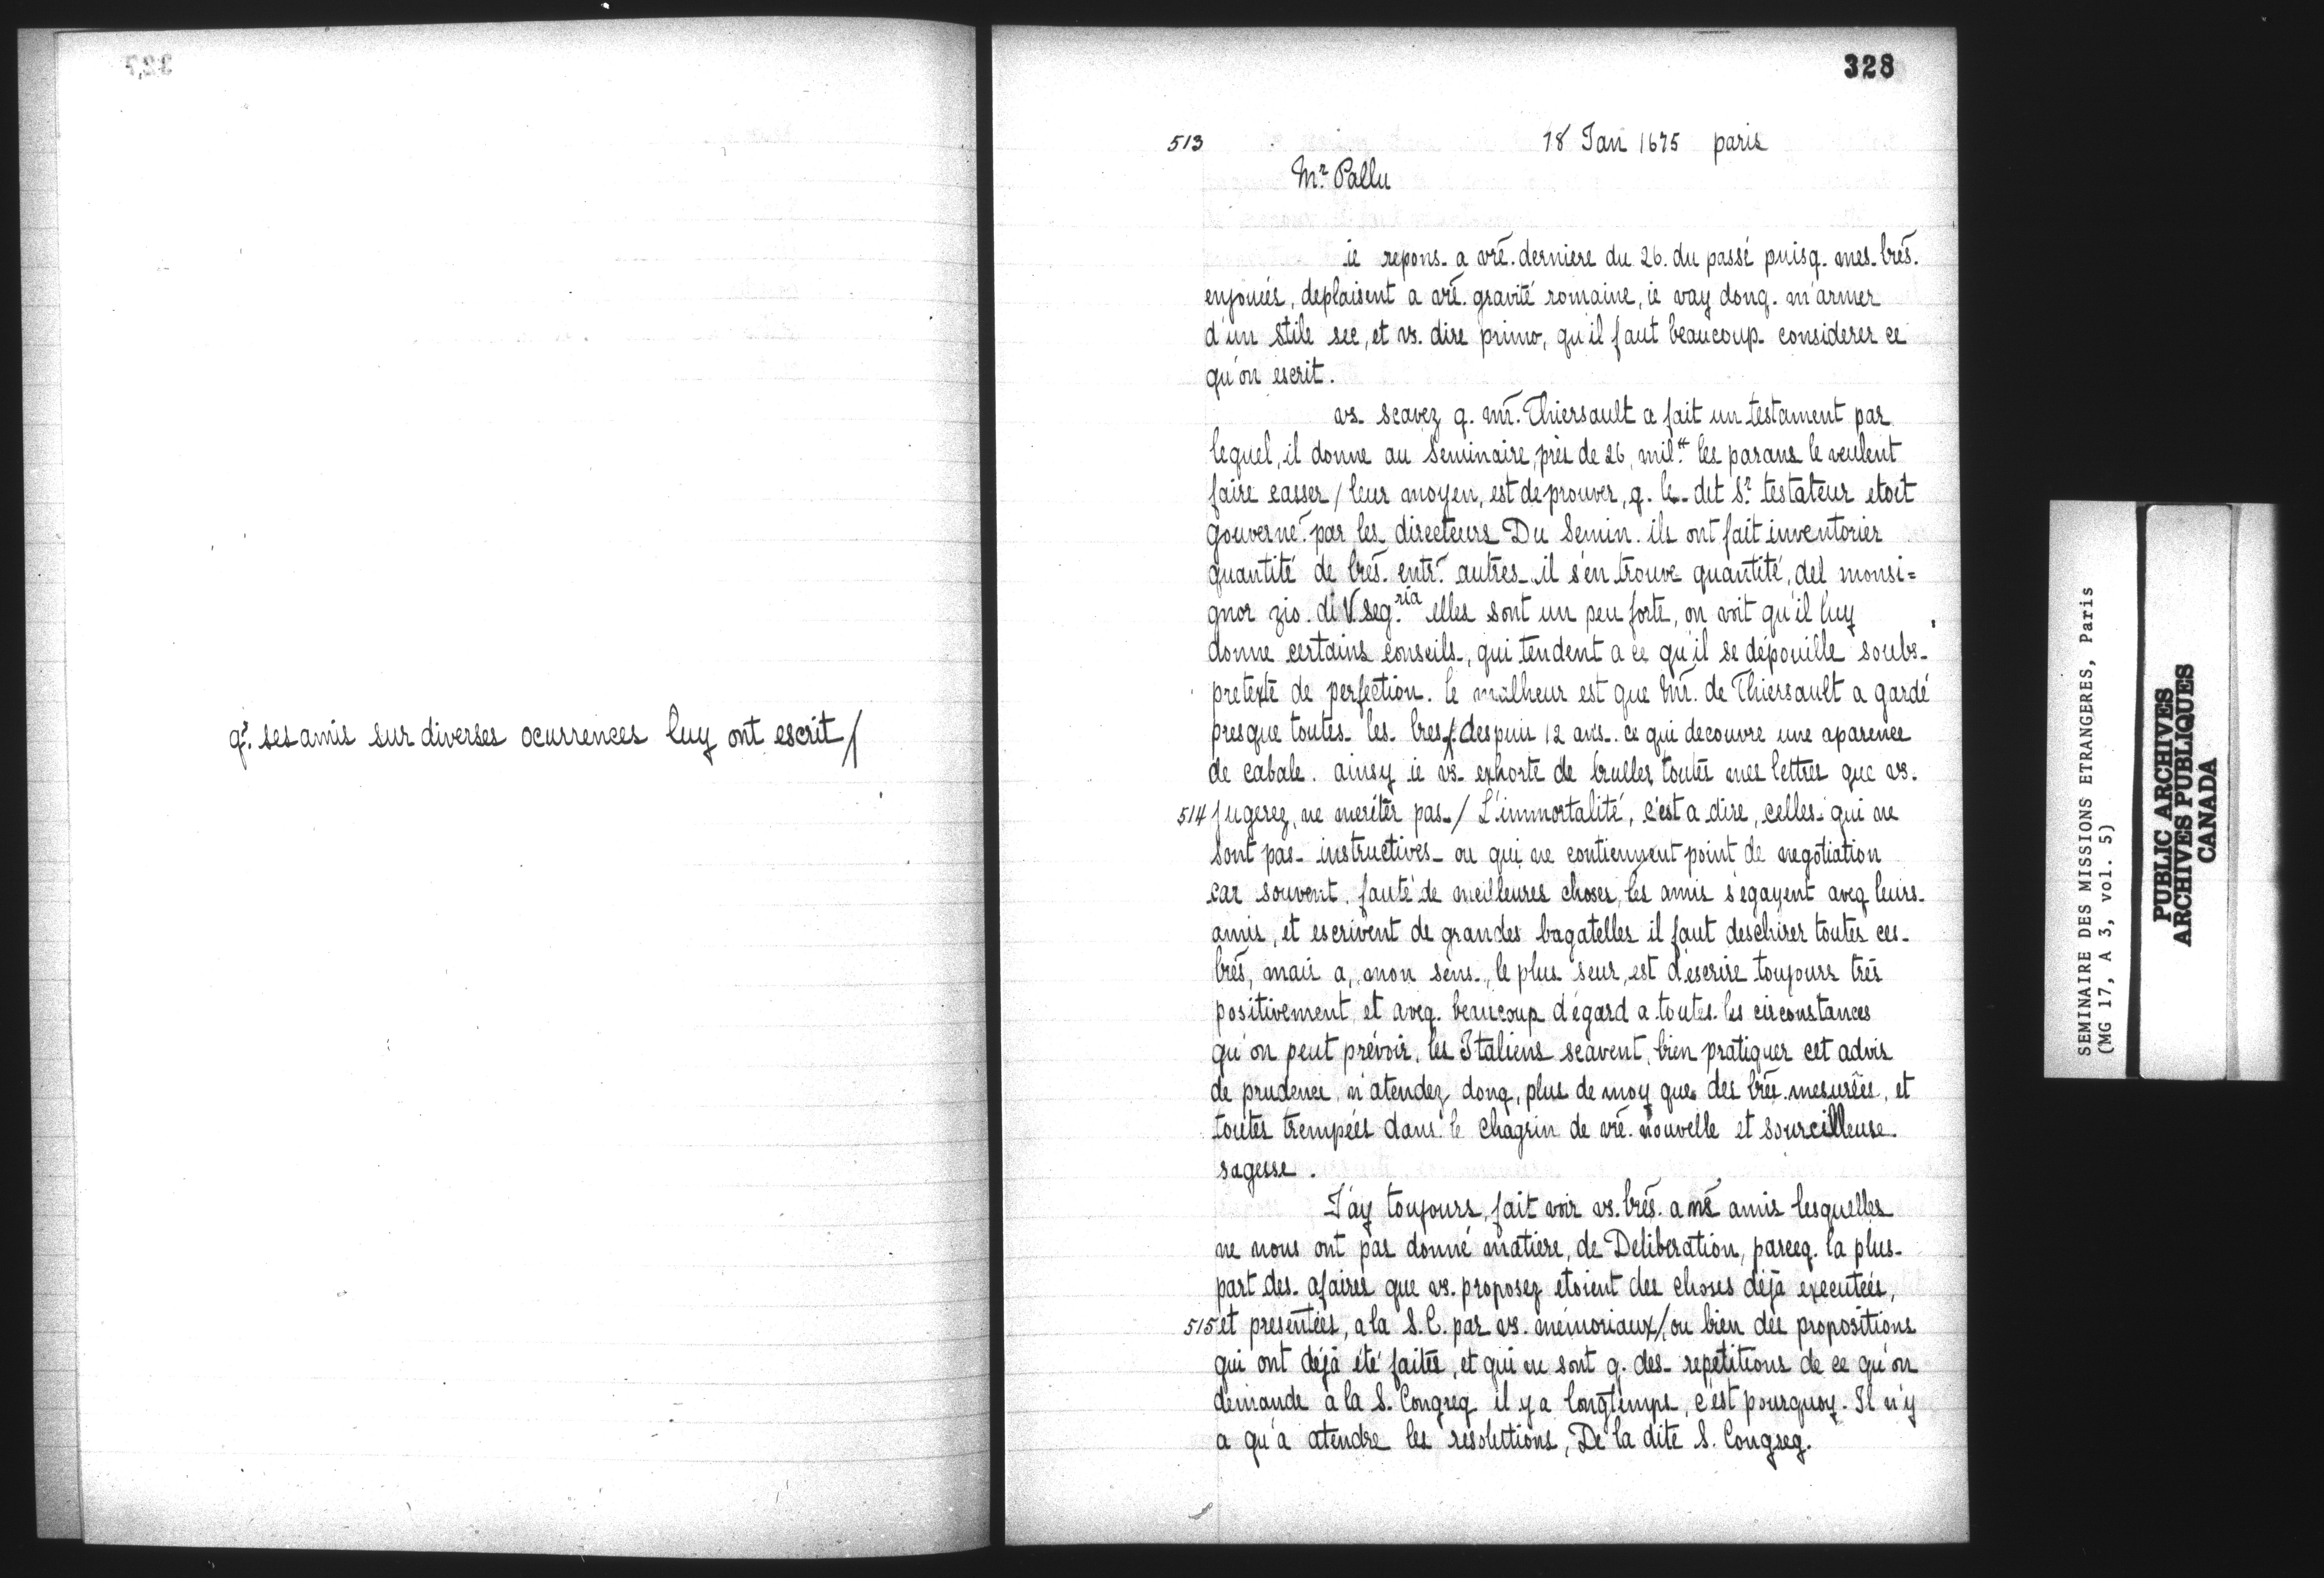 327
q? ses amis sur diverses ocurrences luy ont escrit /
328
513 18 Jan 1675 paris
Mr. Pallu
ie repons. a vrē. derniere du 26. du passé puisq. mes. lrēs.
enjouées, deplaisent a vrē. gravité romaine, ie vay donq. m'armer
d'un stile sec, et vs. dire primo, qu'il faut beaucoup. considerer ce
qu'on escrit.
vs. scavez q. mr̄. Thiersault a fait un testament par
lequel, il donne au Seminaire, près de 26, mil.# les parans le veulent
faire casser / leur moyen, est de prouver, q. le. dit Sr. testateur etoit
gouverné. par les directeurs Du Semin. ils ont fait inventorier
quantité de lrēs. entr̄. autres. il s'en trouve quantité, del monsi=
gnor zio. di V. seg.ria elles sont un peu forte, on voit qu'il luy
donne certains conseils, qui tendent a ce qu'il se dépouille soubs.
pretexte de perfection. le malheur est que mr̄. de Thiersault a gardé
presque toutes. les. lres /. despuis 12 ans. ce qui decouvre une aparence
de cabale. ainsy ie vs. exhorte de brusler toutes mes lettres que vs.
514 jugerez, ne meriter pas. / L'immortalité, c'est a dire, celles. qui ne
sont pas. instructives. ou qui ne contiennent point de negotiation
car souvent. faute de meilleures choses, les amis s'égayent aveq leurs.
amis, et escrivent de grandes bagatelles il faut deschirer toutes ces.
lrēs, mais a, mon sens., le plus seur, est d'escrire toujours très
positivement, et aveq. beaucoup d'égard a toutes. les circonstances
qu'on peut prévoir, les Italiens scavent, bien pratiquer cet advis
de prudence, n'atendez donq, plus de moy que des lrēs. mesurées, et
toutes trempées dans le chagrin de vrē. nouvelle et sourcilleuse.
sagesse.
J'ay toujours, fait voir vs. lrēs. a nš amis lesquelles
ne nous ont pas donné matiere, de Deliberation, parceq. la plus-
part des. afaires que vs. proposez etoient des choses déjà executées,
515 et presentées, a la S. C. par vs. mémoriaux /, ou bien des propositions
qui ont déjà été faites, et qui ne sont q. des. repetitions de ce qu'on
demande à la S. Congreg il y a longtemps, c'est pourquoy. Il n'y
a qu'à atendre les resolutions, De la dite S. Congreg.
SEMINAIRE DES MISSIONS ETRANGERES, Paris
(MG 17, A 3, vol. 5)
PUBLIC ARCHIVES
ARCHIVES PUBLIQUES
CANADA